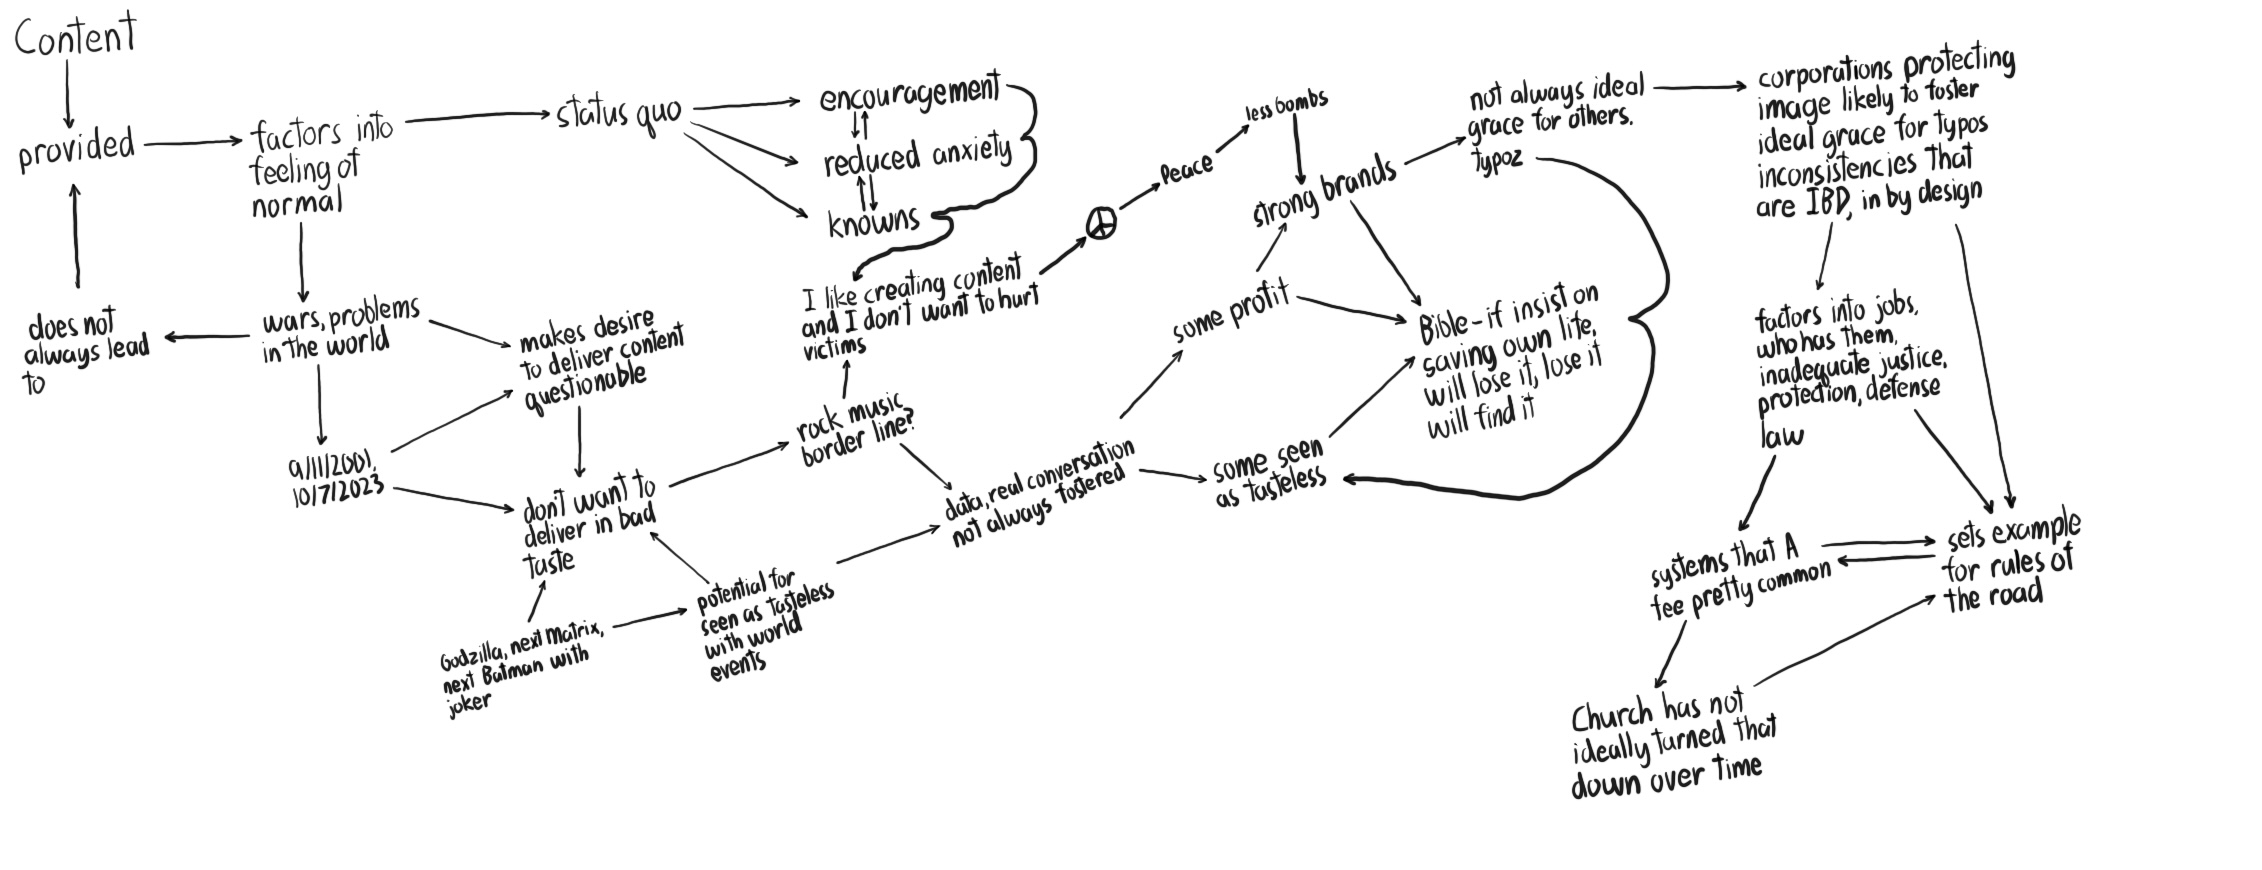 Content
provided
does not
always lead
to
factors into
feeling of
normal
wars, problems
in the world
9/11/2001,
10/7/2023
status quo
encouragement
reduced anxiety
knowns
makes desire
to deliver content
questionable
don't want to
deliver in bad
taste
Godzilla, next Matrix,
next Batman with
joker
potential for
seen as tasteless
with world
events
I like creating content
and I don't want to hurt
victims
rock music
border line?
data, real conversation
not always fostered
Peace
less bombs
strong brands
some profit
some seen
as tasteless
not always ideal
grace for others.
typoz
Bible-if insist on
saving own life,
will lose it, lose it
will find it
corporations protecting
image likely to foster
ideal grace for typos
inconsistencies that
are IBD, in by design
factors into jobs,
who has them,
inadequate justice,
protection, defense
law
systems that A
fee pretty common
sets example
for rules of
the road
Church has not
ideally turned that
down over time